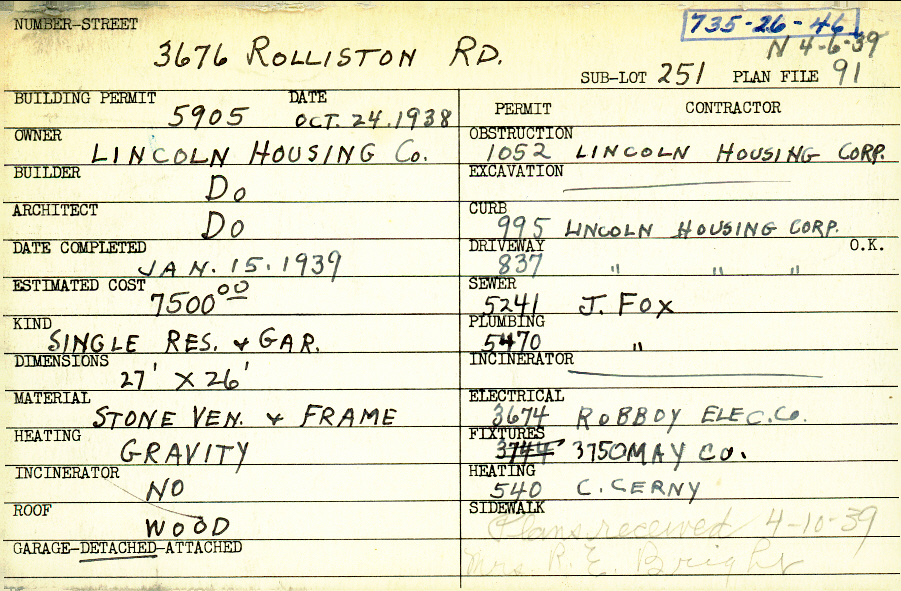 NUMBER-STREET
735-26-46
N 4-6-39
3676 ROLLISTON RD.
SUB-LOT 251 PLAN FILE 91
BUILDING PERMIT 5905 DATE OCT. 24. 1938
OWNER LINCOLN HOUSING Co.
BUILDER Do
ARCHITECT Do
DATE COMPLETED JAN. 15. 1939
ESTIMATED COST 7500 00
KIND SINGLE RES. & GAR.
DIMENSIONS 27' X 26'
MATERIAL STONE VEN. & FRAME
HEATING GRAVITY
INCINERATOR NO
ROOF WOOD
GARAGE-DETACHED-ATTACHED
PERMIT CONTRACTOR
OBSTRUCTION 1052 LINCOLN HOUSING CORP.
EXCAVATION
CURB 995 LINCOLN HOUSING CORP.
DRIVEWAY 837 " " " O.K.
SEWER 5241 J. FOX
PLUMBING 5470 "
INCINERATOR
ELECTRICAL 3674 ROBBOY ELEC. Co.
FIXTURES 3744 3750 MAY Co.
HEATING 540 C. CERNY
SIDEWALK
Plans received 4-10-39
Mrs. R. E. Bright